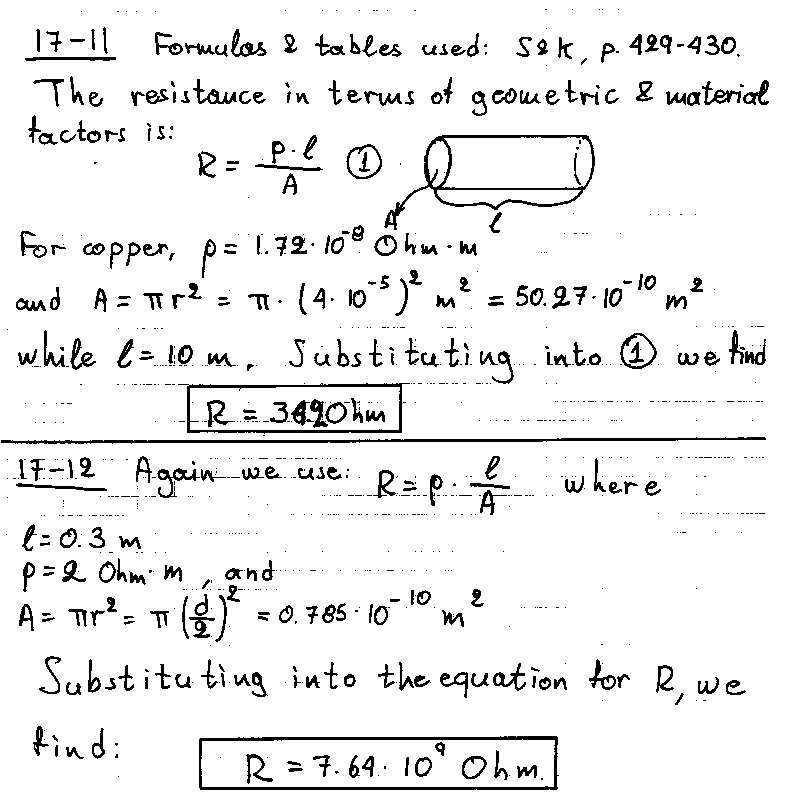 17-11 Formulas & tables used: S&K, p. 429-430.
The resistance in terms of geometric & material
factors is:
R = ρ·l / A ①
A
l
For copper, ρ = 1.72·10⁻⁸ Ohm·m
and A = πr² = π·(4·10⁻⁵)² m² = 50.27·10⁻¹⁰ m²
while l = 10 m. Substituting into ① we find
R = Ohm
17-12 Again we use: R = ρ· l/A where
l = 0.3 m
ρ = 2 Ohm·m, and
A = πr² = π(d/2)² = 0.785·10⁻¹⁰ m²
Substituting into the equation for R, we
find:
R = 7.64·10⁹ Ohm.